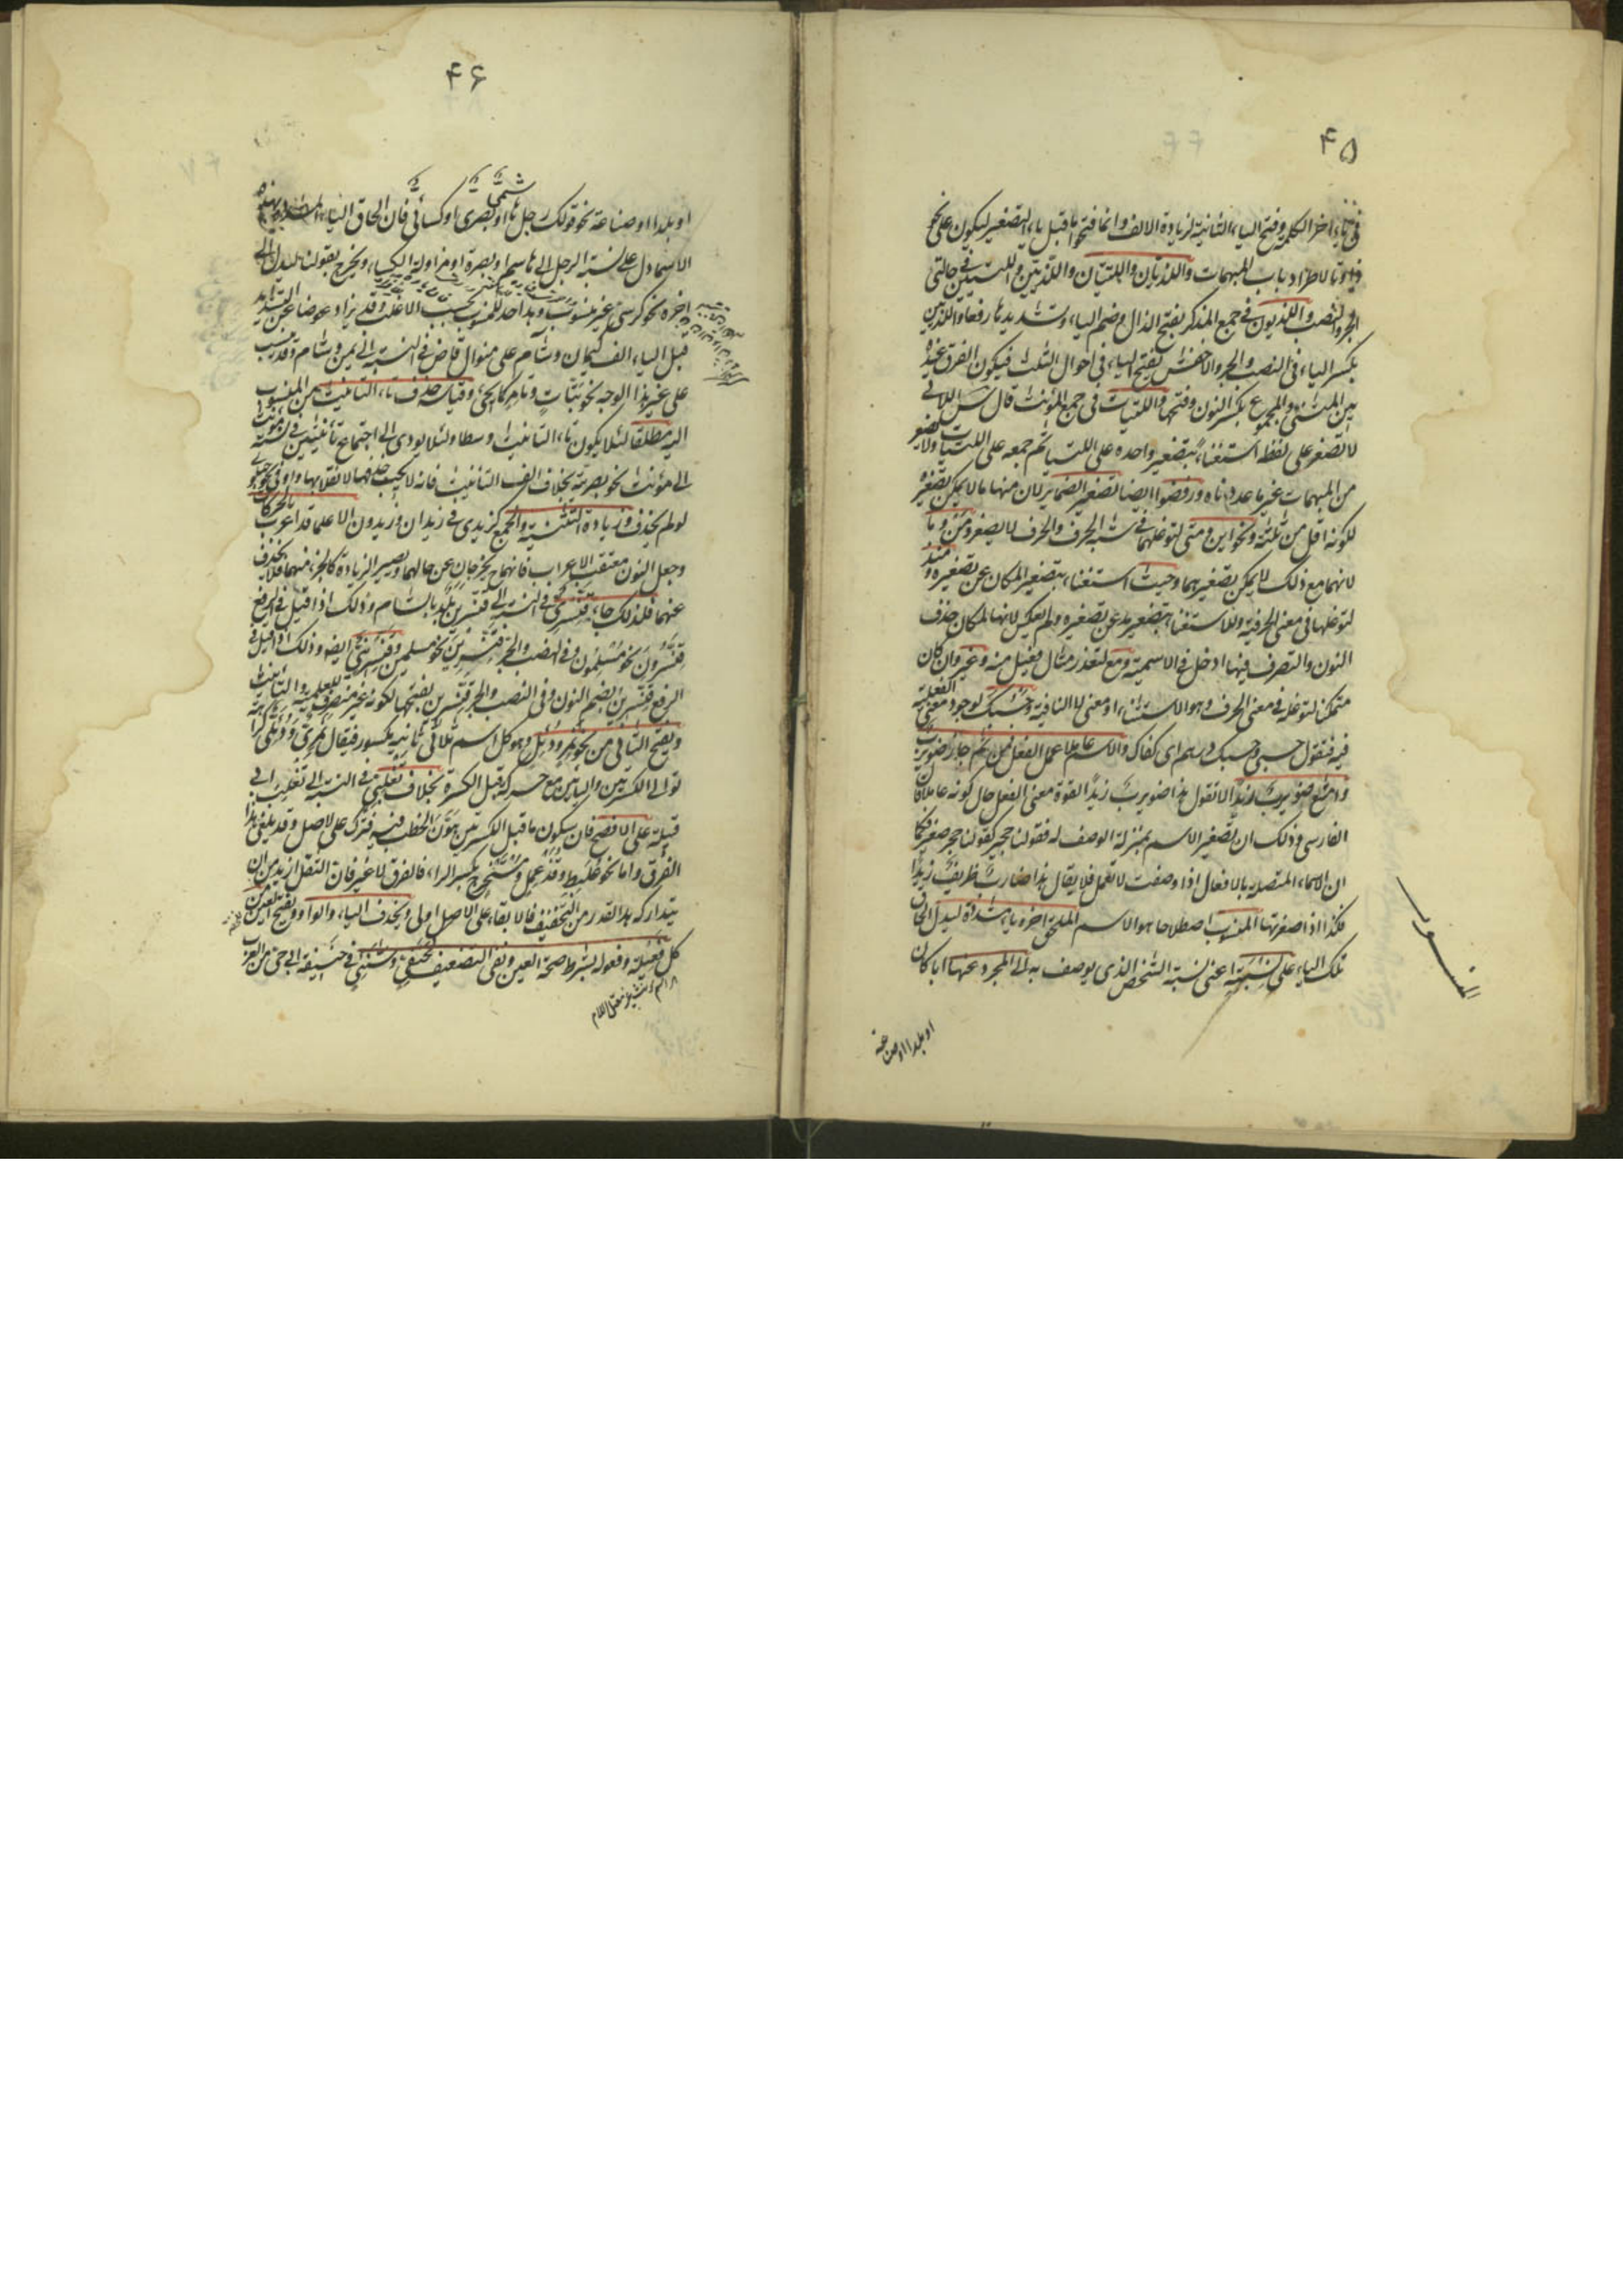 ۴۵
اخر الكلمة وفتح الياء الثانية لزيادة الالف وانما فتحوا ما قبل ياء التصغير ليكون على نحو
لاطراد باب المبهمات واللذيان واللتيان واللذيين واللتيين في حالتي
الجر والنصب واللذيون في جمع المذكر بفتح الذال وضم الياء وتشديدها رفعا واللذيين
بكسر الياء في النصب والجر والاخفش يفتح الياء في احوال الثلث فيكون الفرق عنده
بين المثنى والمجموع بكسر النون وفتحها واللتيات في جمع المؤنث قال س اللاتي
لا تصغر على لفظه استغناء بتصغير واحده على اللتيا ثم جمعه على اللتيات ولا يصغر
من المبهمات غير ما عددناه ورفضوا ايضا تصغير الضمائر لان منها ما لا يمكن تصغيره
لكونه اقل من ثلثة ونحو اين ومتى لتوغلهما في شبه الحرف والحرف لا يصغر ومن وما
لانهما مع ذلك لا يمكن تصغيرهما وحيث استغناء بتصغير المكان عن تصغيره ومنذ
لتوغلها في معنى الحرفية وللاستغناء بتصغير مد عن تصغيره ولم يعكس لانها لمكان حذف
النون والتصرف فيها ادخل في الاسمية ومع لتعذر مثال فعيل منه وغير وان كان
متمكنا لتوغله في معنى الحرف وهو الاستثناء او معنى لا النافية وحسبك لوجود معنى الفعلية
فيه فتقول حسبي وحسبك درهم اى كفاك والاسم عاملا عمل الفعل فمن ثم جاز ضويرب
وامتنع ضويرب زيدا لا تقول هذا ضويرب زيدا لقوة معنى الفعل حال كونه عاملا قال
الفارسي وذلك ان تصغير الاسم بمنزلة الوصف له فقولنا حجير كقولنا حجر صغير فكما
ان الاسماء المتصلة بالافعال اذا وصفت لا تعمل فلا يقال هذا ضارب ظريف زيدا
فكذا اذا صغرتها المنسوب اصطلاحا هو الاسم الملحق اخره ياء مشددة ليدل الحاق
تلك الياء على نسبته اعنى نسبة الشخص الذي يوصف به الى المجرد عنها ابا كان
المنسوب
او بلدا او صناعة
۴۶
او بلدا او صناعة نحو قولك رجل او بصري او كسائي فان الحاق الياء
الاسم دل على نسبة الرجل الى هاشم او بصرة او مزاولة الكساء ويخرج بقولنا ليدل الى
اخره نحو كرسي غير منسوب وهذا حد للمنسوب بحسب الاغلب وقد يزاد عوضا عن التشديد
قبل الياء الف كيمان وشام على منوال قاض في النسبة الى يمن وشام وقد ينسب
على غير هذا الوجه نحو بتات وقياسه حذف تاء التانيث من المنسوب
اليه مطلقا لئلا يكون تاء التانيث وسطا ولئلا يؤدى الى اجتماع تأنيثين في نسبة مؤنث
الى مؤنث نحو بصرية بخلاف الف التانيث فانه لا يجب حذفها لانقلابها واوا في نحو حبلى
لو لم يحذف وزيادة التثنية والجمع كزيدي في زيدان وزيدون الا علما قد اعرب بالحركات
وجعل النون معتقب الاعراب فانهما يخرجان عن حالهما ويصير الزيادة كالجزء منهما فلا يحذف
عنهما فلذلك جاء قنسري في النسبة الى قنسرين بلد بالشام وذلك اذا قيل في الرفع
قنسرون نحو مسلمون وفي النصب والجر قنسرين نحو مسلمين وقنسريني ايضا وذلك اذا قيل في
الرفع قنسرين بضم النون وفي النصب والجر قنسرين بفتحها لكونه غير منصرف للعلمية والتانيث
ويفتح الثاني من نحو نمر ودئل وهو كل اسم ثلاثي ثانيه مكسور فيقال نمري ودؤلي كراهة
توالي الكسرتين والياءين مع حركة قبل الكسرة بخلاف تغلبي في النسبة الى تغلب ابي
قبيلة على الافصح فان سكون ما قبل الكسرتين هون الخطب فيه فترك على الاصل وقد يلغى هذا
الفرق واما نحو علبط وقذعمل ومستخرج بكسر الراء فالفرق لا غير فان الثقل ازيد من ان
يتداركه هذا القدر من التخفيف فالابقاء على الاصل اولى ويحذف الياء والواو ويفتح العين من
كل فعيلة وفعولة بشرط صحة العين ونفى التضعيف كحنفي وشنئي في حنيفة ابي حي من العرب